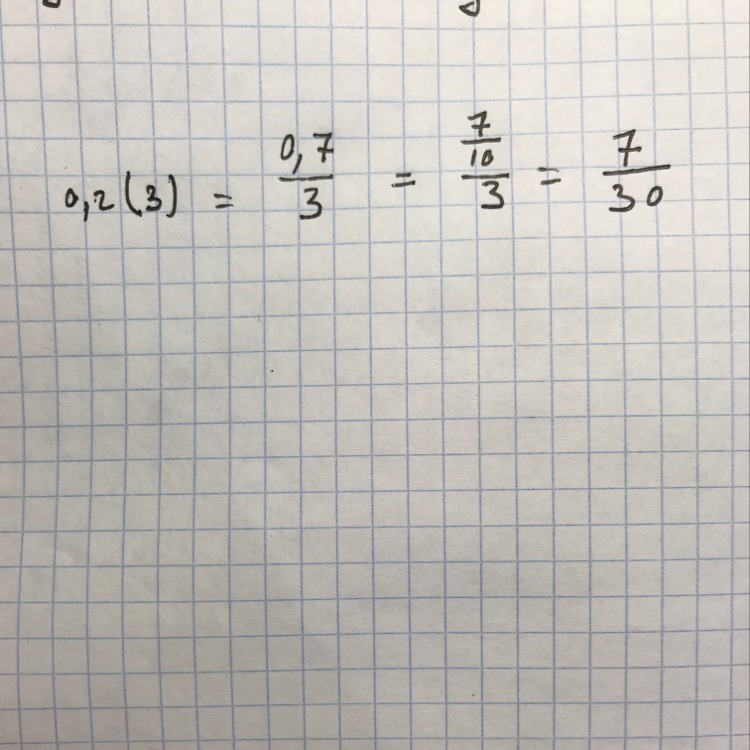 0,2(3) = 0,7/3 = 7/10/3 = 7/30